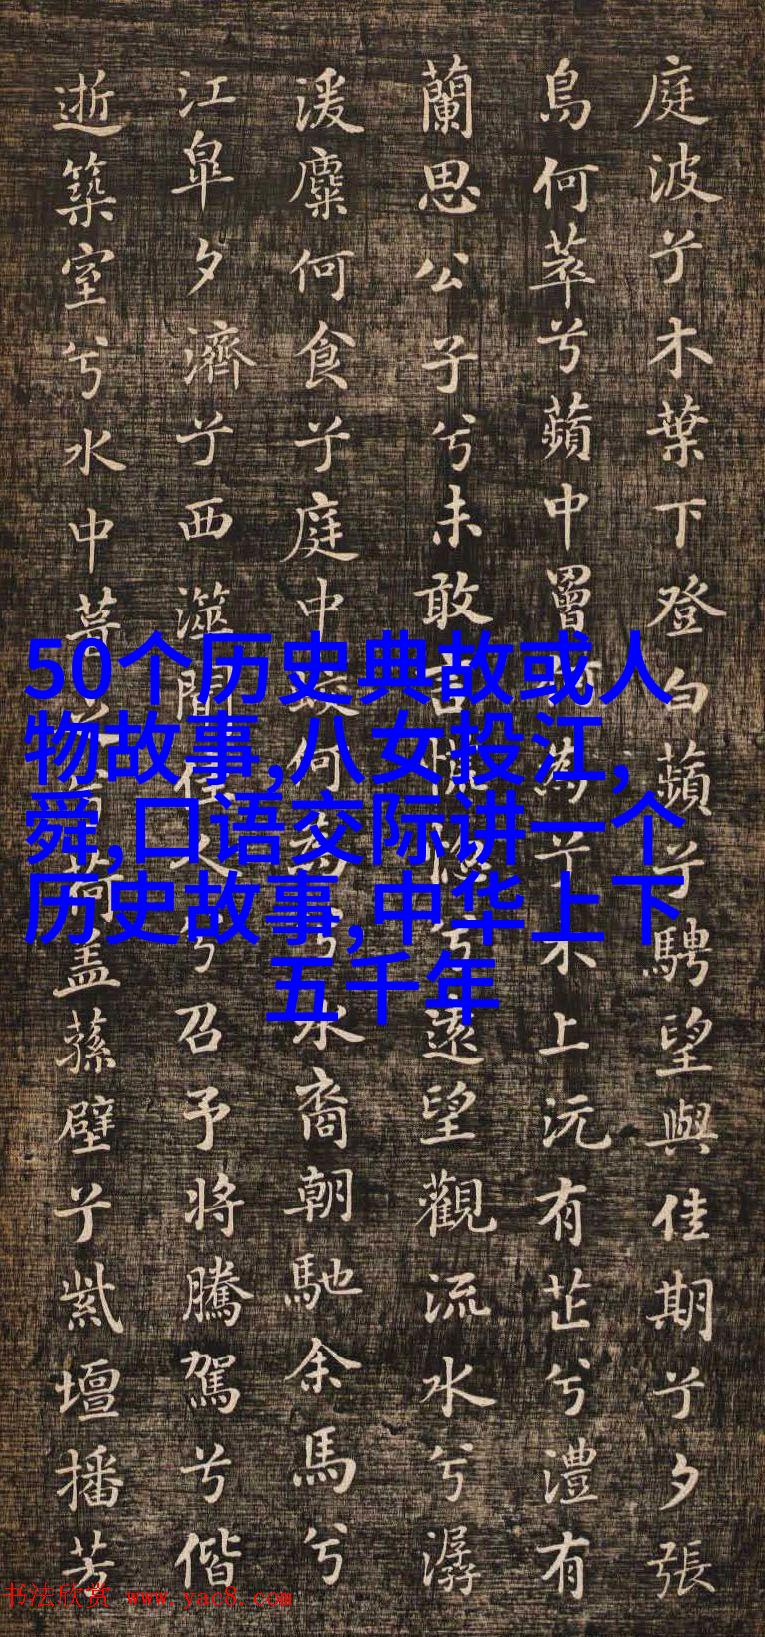 庭波兮木葉下登白蘋兮騁望與佳期兮夕張
鳥何萃兮蘋中罾何為兮木上沅有芷兮澧有
蘭思公子兮未敢言慌惚兮遠望觀流水兮潺
湲麋何食兮庭中蛟何為兮水裔朝馳余馬兮
江皐夕濟兮西澨聞佳人兮召予將騰駕兮偕
逝築室兮水中葺之兮荷蓋蓀壁兮紫壇播芳
50个历史典故或人
物故事,八女投江,
舜,口语交际讲一个
历史故事,中华上下
五千年
书法欣赏 www.yac8.com